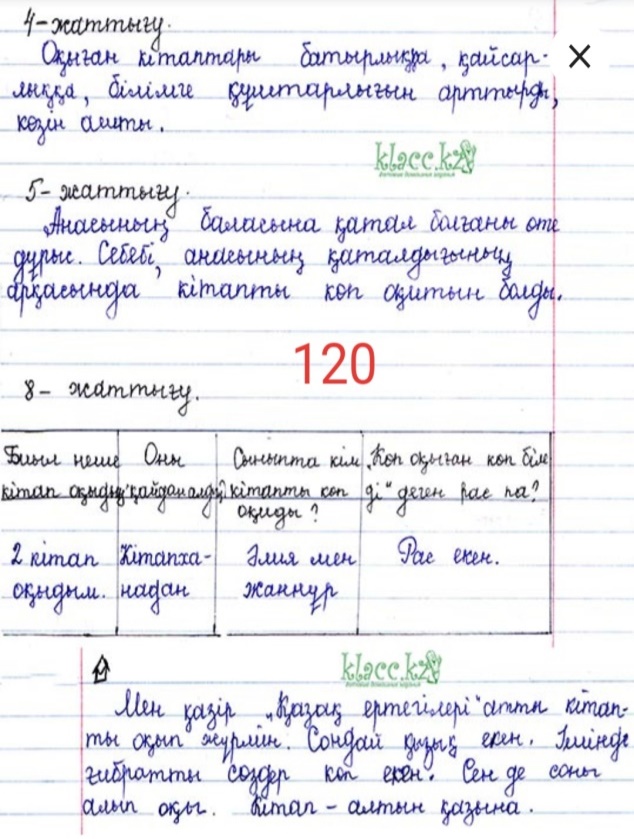 4-жаттығу.
Оқыған кітаптары батырлыққа, қайсар-
лыққа, білімге құштарлығын арттырды,
көзін ашты.
klacc.kz
5- жаттығу.
Анасының баласына қатал болғаны өте
дұрыс. Себебі, анасының қаталдығының
арқасында кітапты көп оқитын болды.
120
8- жаттығу.
Биыл неше кітап оқыдың?
Оны қайдан алдың?
Сыныпта кім кітапты көп оқиды?
„Көп оқыған көп біле ді" деген рас па?
2 кітап оқыдым.
Кітапха- надан
Әлия мен Жаннұр
Рас екен.
klacc.kz
Мен қазір „Қазақ ертегілері" атты кітап-
ты оқып жүрмін. Сондай қызық екен. Ішінде
ғибратты сөздер көп екен. Сен де соны
алып оқы. Кітап – алтын қазына.